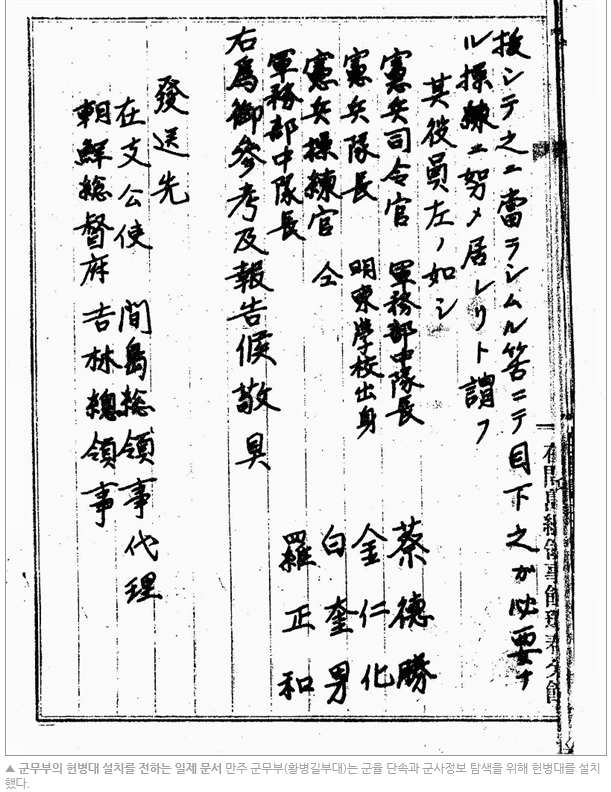 援シテ之ニ當ラシムル筈ニテ目下之ガ必要ナ
ル操練ニ努メ居レリト謂フ
其役員左ノ如シ
憲兵司令官 軍務部中隊長 蔡德勝
憲兵隊長 明東學校出身 金仁化
憲兵操練官 仝 白奎男
軍務部中隊長 羅正和
右爲御參考及報告候敬具
發送先
在支公使 間島総領事代理
朝鮮総督府 吉林總領事
在間島総領事館琿春分館
▲ 군무부의 헌병대 설치를 전하는 일제 문서 만주 군무부(황병길부대)는 군율 단속과 군사정보 탐색을 위해 헌병대를 설치
했다.